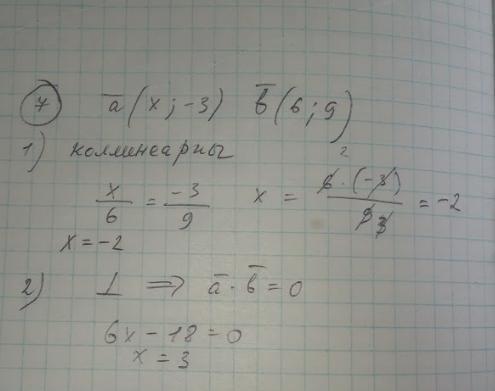 7 a̅(x; -3) b̅(6; 9)
1) коллинеарны
x/6 = -3/9 x = 6 · (-3)/9 3 = -2
2
x = -2
2) ⊥ ⟹ a̅ · b̅ = 0
6x - 18 = 0
x = 3